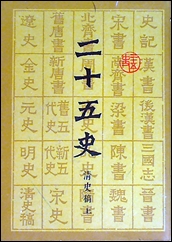 史記
漢書
後漢書
三國志
晉書
宋書
南齊書
梁書
陳書
魏書
二十五史
清史稿 上
北齊書
周書
隋書
南史
北史
舊唐書
新唐書
舊五代史
新五代史
宋史
遼史
金史
元史
明史
清史稿